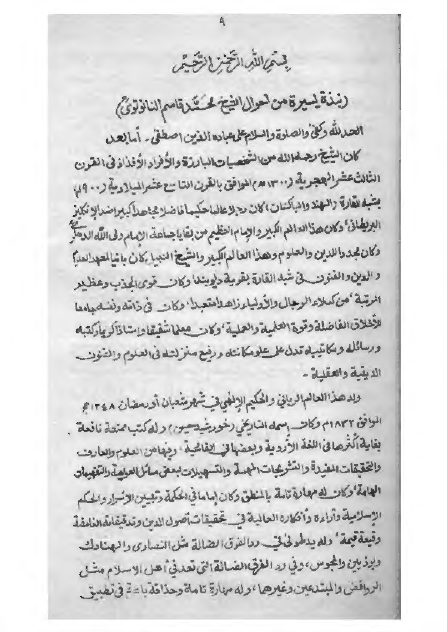 ٩
بِسْمِ اللهِ الرَّحْمٰنِ الرَّحِيْمِ
(نبذة يسيرة من احوال الشيخ محمد قاسم النانوتوىؒ)
الحمد لله وكفى والصلوة والسلام على عباده الذين اصطفى ـ أما بعد
كان الشيخ رحمه الله من الشخصيات البارزة والأفراد الأفذاذ فى القرن
الثالث عشر الهجرية (١٣٠٠ه) الموافق بالقرن التاسع عشر الميلادية (١٩٠٠م)
بشبه القارة والهند والباكستان، كان رجلا عالما حكيما فاضلا مجاهدا كبيرا ضد الإنكليز
البريطانى، وكان هذا العالم الكبير والإمام العظيم من بقايا جماعة الإمام ولى الله الدهلوى
وكان مجدد الدين والعلوم وهذا العالم الكبير والشيخ النبيل كان بانيا لمعهد
والدين والفنون فى شبه القارة بقرية ديوبند، وكان قوى الجذب وعظيم
المرتبة، من كملاء الرجال والأولياء زاهدا متعبدا، وكان فى ذاته ونفسه جامعا
للأخلاق الفاضلة وقوة العلمية والعملية، وكان معلما شفيقا واستاذا كريما، كتبه
ورسائله ومكاتيبه تدل على علو مكانته ورفيع منزلته فى العلوم والفنون
الدينية والعقلية ـ
ولد هذا العالم الربانى والحكيم الإلهى فى شهر شعبان أو رمضان ١٢٤٨ه
الموافق ١٨٣٢م وكان اسمه التاريخى (خورشيد حسين) وله كتب ممتعة نافعة
بغاية أكثرها فى اللغة الأردوية وبعضها فى الفارسية، وفيها من العلوم والمعارف
والتحقيقات المفيدة والتشريحات المهمة والتسهيلات لبعض مسائل العويصة والتفهيمات
الهامة، وكان له مهارة تامة بالمنطق وكان إماما فى الحكمة وتبيين الأسرار والحكم
الإسلامية وآراءه وأفكاره العالية فى تحقيقات أصول الدين وتدقيقات الفلسفة
وقيعة قيمة، وله يد طولى فى رد الفرق الضالة مثل النصارى والهنادك
وبوذيين والمجوس، وفى رد الفرق الضالة التى تعد فى أهل الاسلام مثل
الروافض والمبتدعين وغيرها، وله مهارة تامة وحذاقة بالغة فى تطبيق